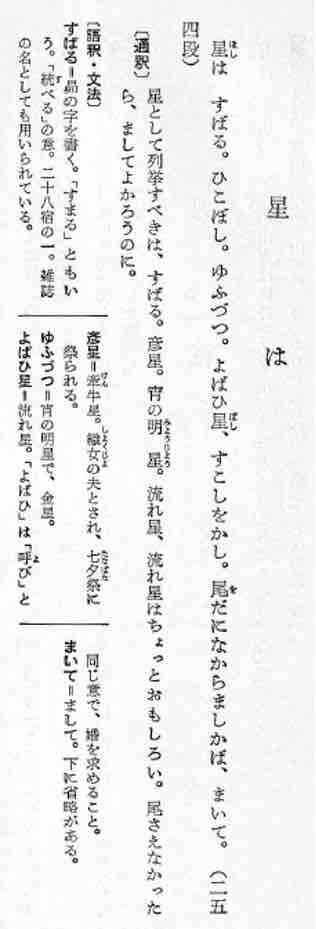 星は
星は　すばる。ひこぼし。ゆふづつ。よばひ星、すこしをかし。尾だになからましかば、まいて。（二五
四段）
〔通釈〕　星として列挙すべきは、すばる。彦星。宵の明星。流れ星、流れ星はちょっとおもしろい。尾さえなかった
ら、ましてよかろうのに。
〔語釈・文法〕
すばる＝昴の字を書く。「すまる」ともい
う。「統べる」の意。二十八宿の一。雑誌
の名としても用いられている。
彦星＝牽牛星。織女の夫とされ、七夕祭に
祭られる。
ゆふづつ＝宵の明星で、金星。
よばひ星＝流れ星。「よばひ」は「呼び」と
同じ意で、婚を求めること。
まいて＝まして。下に省略がある。